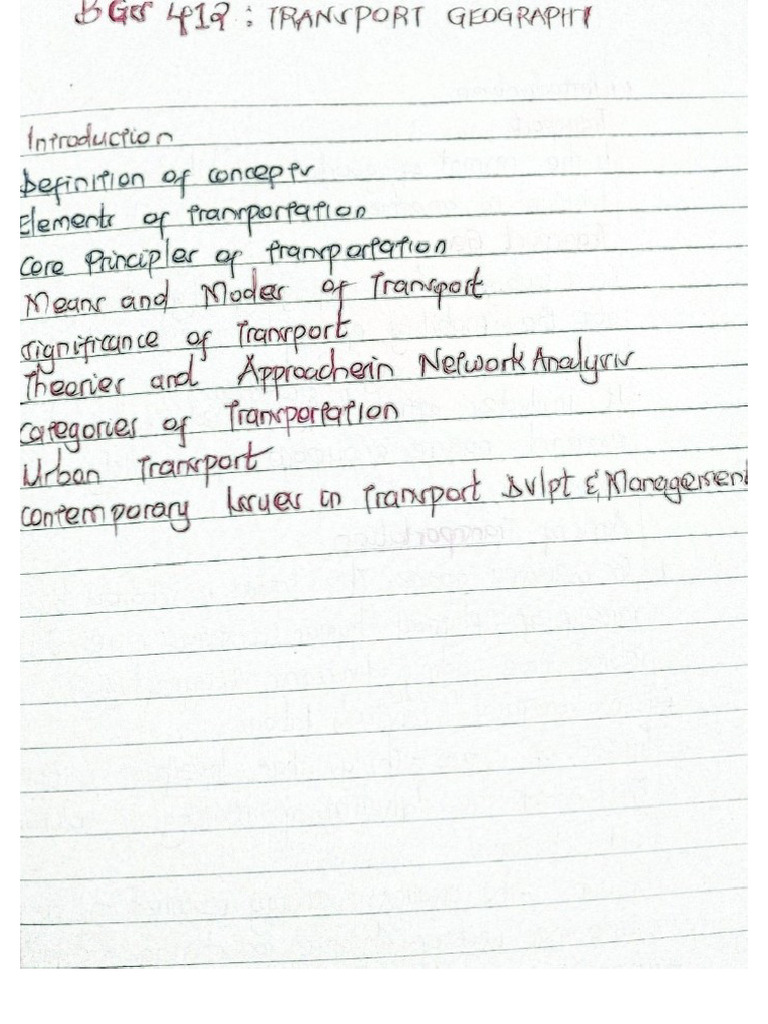 BGes 412: TRANSPORT GEOGRAPHY
Introduction
Definition of concepts
Elements of transportation
Core Principles of transportation
Means and Modes of Transport
Significance of Transport
Theories and Approaches in Network Analysis
Categories of Transportation
Urban Transport
Contemporary Issues in Transport Dvlpt & Management